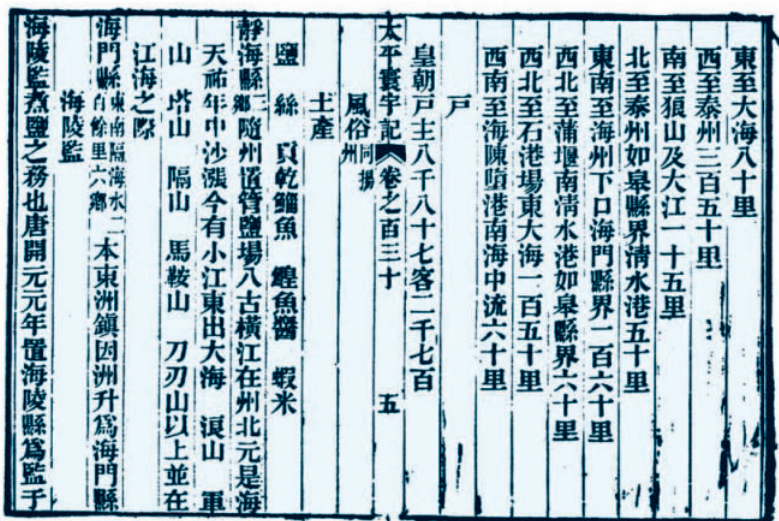 東至大海八十里
西至泰州三百五十里
南至狼山及大江一十五里
北至泰州如臯縣界淸水港五十里
東南至海州下口海門縣界一百六十里
西北至蒲堰南淸水港如臯縣界六十里
西北至石港場東大海一百五十里
西南至海陳嗊港南海中流六十里
戸
皇朝戸主八千八十七客二千七百
太平寰宇記 卷之百三十 五
風俗同揚州
土產
鹽 絲 貢乾鯔魚 鰉魚醬 蝦米
靜海縣二鄉隨州置管鹽場八古橫江在州北元是海
天祐年中沙漲今有小江東出大海 狼山 軍
山 塔山 隔山 馬鞍山 刀刃山以上並在
江海之際
海門縣東南隔海水二百餘里六鄉 本東洲鎮因洲升爲海門縣
海陵監
海陵監煑鹽之務也唐開元元年置海陵縣爲監于